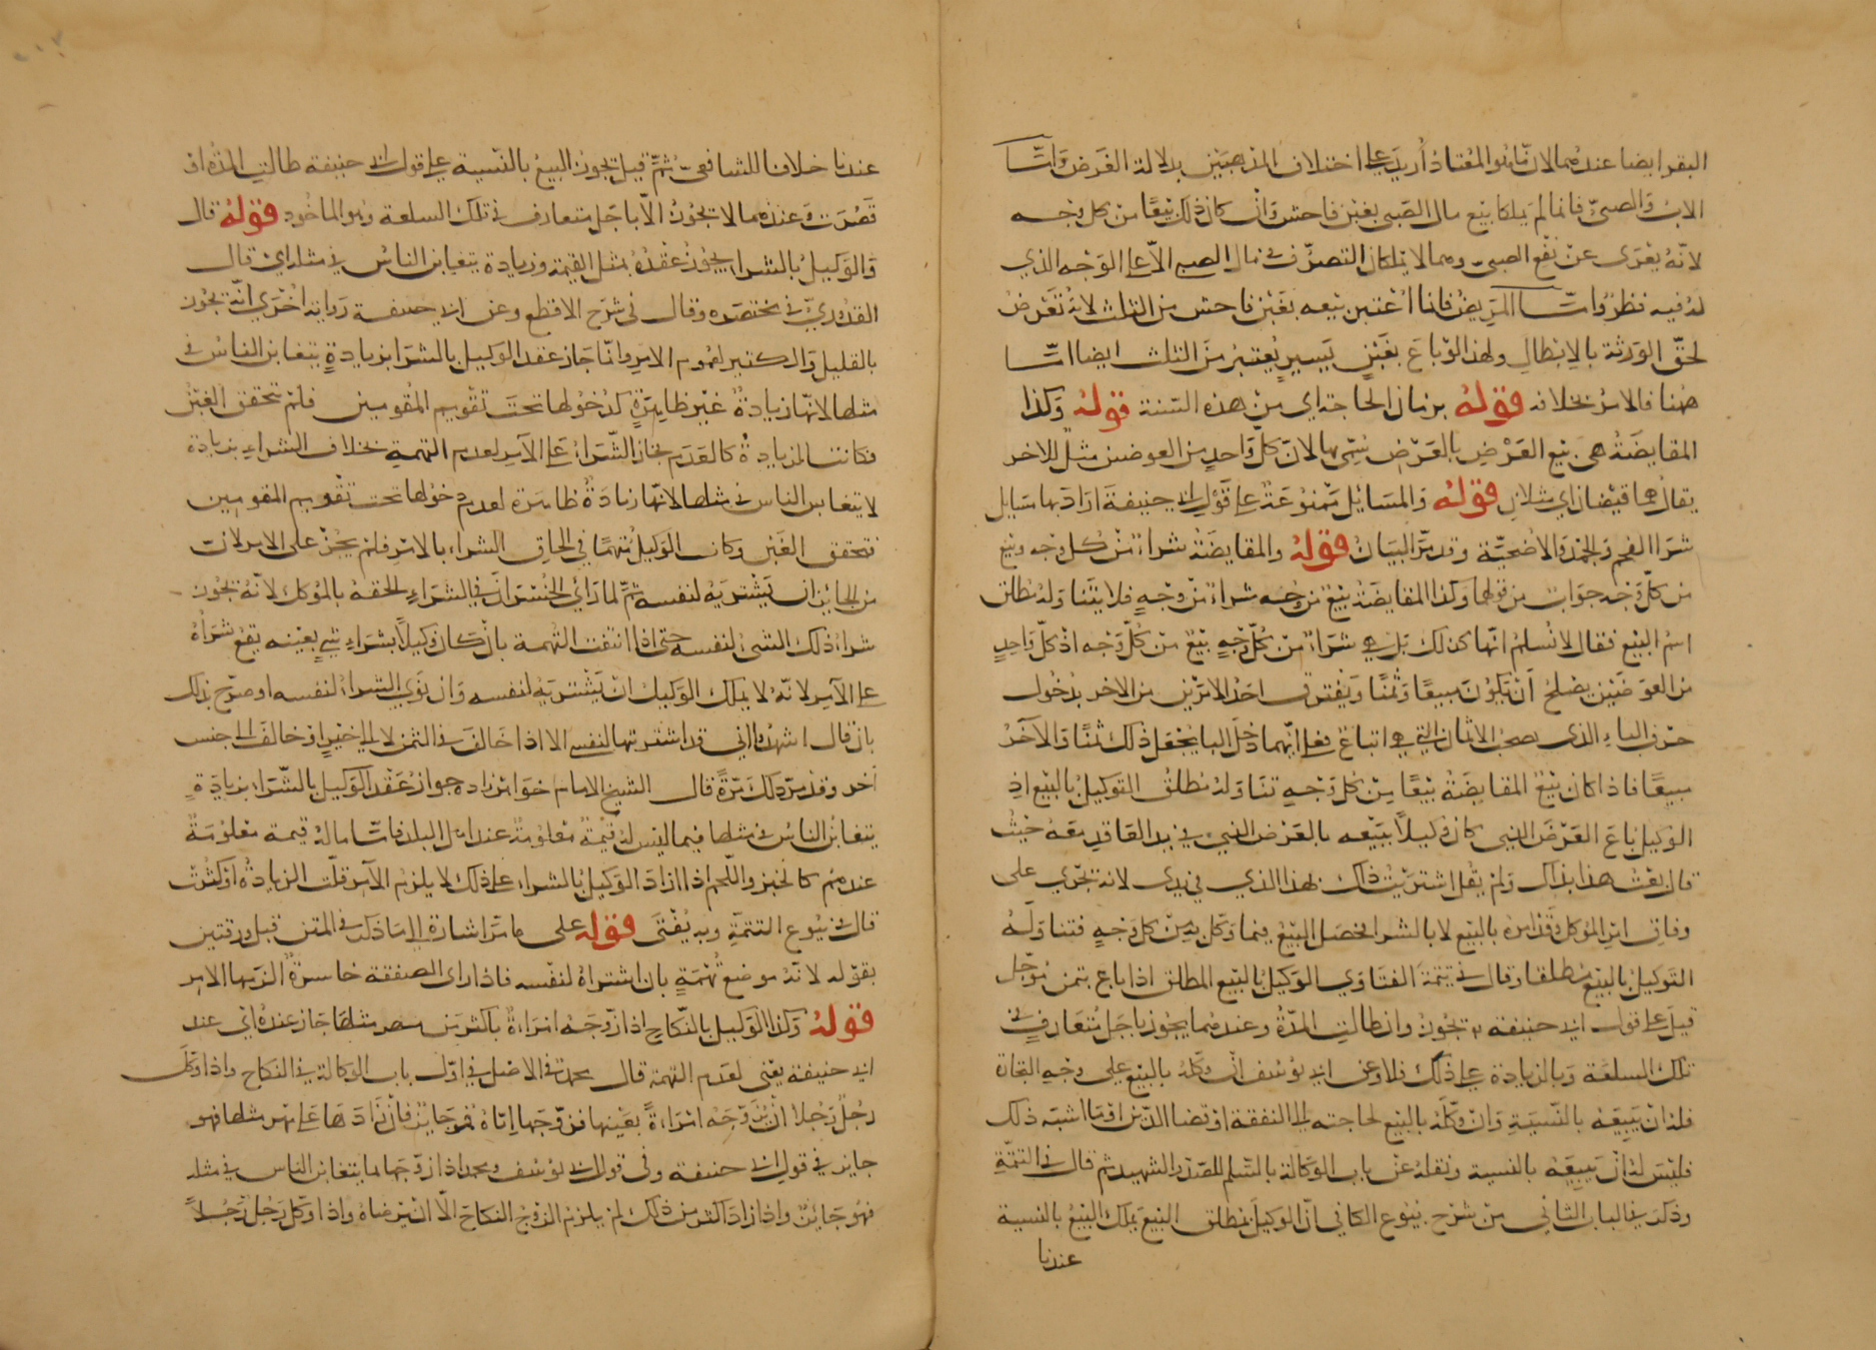 البقر ايضا عندهما لان ما هو المعتاد أريد على اختلاف المذهبين بدلالة الغرض وأما
الاب والصبي فانما لم يملكا بيع مال الصبي بغبن فاحش وان كان ذلك بيعا من كل وجه
لانه يعرى عن نفع الصبي وهما لا يملكان التصرف في مال الصبي الا على الوجه الذي
له فيه نظر وأما المريض فانما اعتبر بيعه بغبن فاحش من الثلث لانه تعرض
لحق الورثة بالابطال ولهذا لو باع بغبن يسير يعتبر من الثلث ايضا اما
هنا فالامر بخلافه قوله بزمان الحاجة اي من هذه السنة قوله وكذا
المقايضة هي بيع العرض بالعرض سمي بها لان كل واحد من العوضين مثل للاخر
يقال هما قيضان اي مثلان قوله والمسايل ممنوعة على قول ابي حنيفة اراد بها مسايل
شرا الفحم والجمد والاضحية وقد مر البيان قوله والمقايضة شراء من كل وجه وبيع
من كل وجه جواب عن قولهما وكذا المقايضة بيع من وجه شراء من وجه فلا يتناوله مطلق
اسم البيع فقال لا نسلم انها كذلك بل هي شراء من كل وجه بيع من كل وجه اذ كل واحد
من العوضين يصلح أن يكون مبيعا وثمنا ويفترق احد الامرين من الاخر بدخول
حرف الباء الذي يصحب الاثمان التي هي اتباع فعلى ايهما دخل البا يجعل ذلك ثمنا والآخر
مبيعا فاذا كان بيع المقايضة بيعا من كل وجه تناوله مطلق التوكيل بالبيع اذ
الوكيل باع العرض الذي كان وكيلا ببيعه بالعرض الذي في يد العاقد معه حيث
قال بعت هذا بذاك ولم يقل اشتريت ذاك بهذا الذي في يدي لانه تجري على
وفاق امر الموكل وقد امره بالبيع لا بالشرا فحصل البيع فيما وكل به من كل وجه فتناوله
التوكيل بالبيع مطلقا وقال في تتمة الفتاوي الوكيل بالبيع المطلق اذا باع بثمن مؤجل
قيل على قول ابي حنيفة يجوز وان طالت المدة وعندهما يجوز باجل متعارف في
تلك السلعة وبالزيادة على ذلك فلا وعن ابي يوسف ان وكله بالبيع على وجه التجارة
فله ان يبيعه بالنسية وان وكله بالبيع لحاجته الى النفقة او قضا الدين او ما اشبه ذلك
فليس له ان يبيعه بالنسية ونقله عن باب الوكالة بالسلم للصدر الشهيد ثم قال في التتمة
وذكر في الباب الثاني من شرح بيوع الكافي ان الوكيل بمطلق البيع يملك البيع بالنسية
عندنا
عندنا خلافا للشافعي ثم قيل يجوز البيع بالنسية على قول ابي حنيفة طالت المدة او
قصرت وعندهما لا يجوز الا باجل متعارف في تلك السلعة وهو الماخوذ قوله قال
والوكيل بالشراء يجوز عقده بمثل القيمة وزيادة يتغابن الناس في مثلها اي قال
القدوري في مختصره وقال في شرح الاقطع وعن ابي حنيفة رواية اخرى انه يجوز
بالقليل والكثير لعموم الامر وانما جاز عقد الوكيل بالشرا بزيادة يتغابن الناس في
مثلها لانها زيادة غير ظاهرة لدخولها تحت تقويم المقومين فلم يتحقق الغبن
فكانت الزيادة كالعدم فجاز الشراء على الآمر لعدم التهمة بخلاف الشراء بزيادة
لا يتغابن الناس في مثلها لانها زيادة ظاهرة لعدم دخولها تحت تقويم المقومين
فتحقق الغبن وكان الوكيل متهما في الحاق الشراء بالامر فلم يجز على الامر لان
من الجايز ان يشتريه لنفسه ثم لما رأى الخسران في الشراء الحقه بالموكل لانه يجوز
شراء ذلك الشيء لنفسه حتى اذا انتفت التهمة بان كان وكيلا بشراء شيء بعينه يقع شراؤه
على الآمر لانه لا يملك الوكيل ان يشتريه لنفسه وان نوى الشراء لنفسه او صرح بذلك
بان قال اشهدوا اني قد اشتريتها لنفسي الا اذا خالف في الثمن لا الى خير او خالف الى جنس
آخر وقد مر ذلك مرة قال الشيخ الامام خواهر زاده جواز عقد الوكيل بالشراء بزيادة
يتغابن الناس في مثلها فيما ليس له قيمة معلومة عند اهل البلد فاما ما له قيمة معلومة
عندهم كالخبز واللحم اذا زاد الوكيل بالشراء على ذلك لا يلزم الآمر قلت الزيادة او كثرت
قال في بيوع التتمة وبه يفتى قوله على ما مر اشارة الى ما ذكر في المتن قبل ورقتين
بقوله لانه موضع تهمة بان اشتراه لنفسه فاذا راى الصفقة خاسرة الزمها الامر
قوله وكذا الوكيل بالنكاح اذا زوجه امراة باكثر من مهر مثلها جاز عنده اي عند
ابي حنيفة يعني لعدم التهمة قال محمد في الاصل في اول باب الوكالة في النكاح واذا وكل
رجل رجلا ان يزوجه امراة بعينها فزوجها اياه فهو جايز فان زادها على مهر مثلها فهو
جايز في قول ابي حنيفة وفي قول ابي يوسف ومحمد اذا زوجها بما يتغابن الناس في مثله
فهو جايز واذا زاد اكثر من ذلك لم يلزم الزوج النكاح الا ان يرضاه واذا وكل رجل رجلا